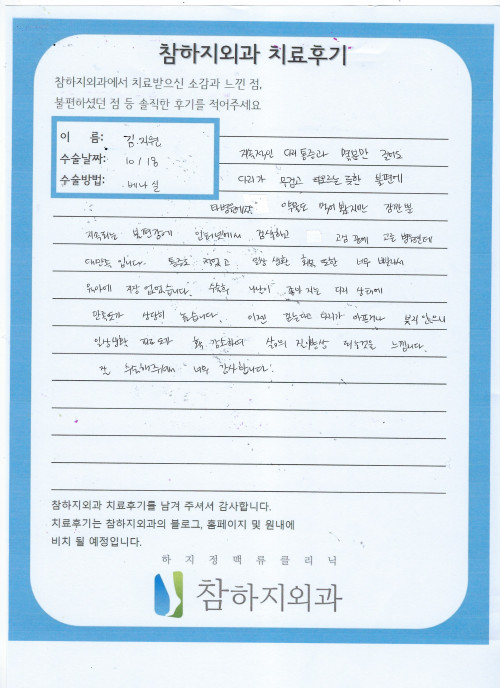 참하지외과 치료후기
참하지외과에서 치료받으신 소감과 느낀 점,
불편하셨던 점 등 솔직한 후기를 적어주세요
이 름: 김지원
수술날짜: 10/13
수술방법: 베나실
지속적인 다리통증과 몇분만 걸어도
다리가 무겁고 타오르는 듯한 불편에
타병원에서 약물도 먹어 봤지만 잠깐 뿐
지속되는 불편감에 인터넷에서 검색하고 고심 끝에 고른 병원인데
대만족 입니다. 통증도 적었고 일상 생활 회복 또한 너무 빨라서
육아에 지장 없었습니다. 수술후 나날이 좋아 지는 다리 상태에
만족도가 상당히 높습니다. 이젠 걸을때도 다리가 아프거나 붓지 않으니
일상생활 피로도가 확 감소하여 삶의 질 향상 되는것을 느낍니다.
잘 수술해주셔서 너무 감사합니다.
참하지외과 치료후기를 남겨 주셔서 감사합니다.
치료후기는 참하지외과의 블로그, 홈페이지 및 원내에
비치 될 예정입니다.
하지정맥류클리닉
참하지외과